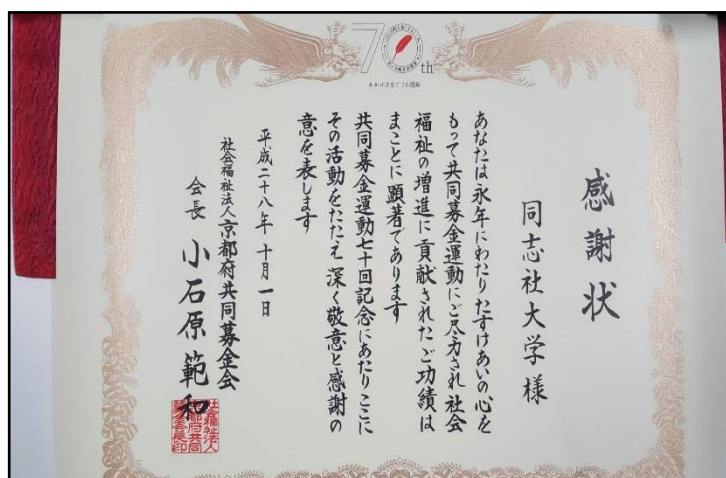 70th
あかいはねまで70周年
感謝状
同志社大学様
あなたは永年にわたりたすけあいの心を
もって共同募金運動にご尽力され社会
福祉の増進に貢献されたご功績は
まことに顕著であります
共同募金運動七十回記念にあたりここに
その活動をたたえ深く敬意と感謝の
意を表します
平成二十八年十月一日
社会福祉法人京都府共同募金会
会長 小石原範和